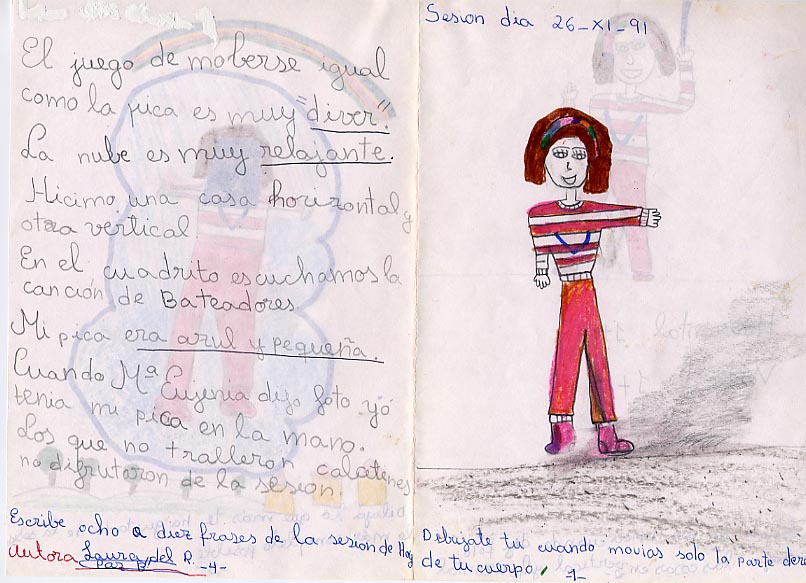 El juego de moberse igual
como la pica es muy "diver".
La nube es muy relajante.
Hicimo una casa horizontal y
otra vertical
En el cuadrito escuchamos la
canción de Bateadores
Mi pica era azul y pequeña.
Cuando Mª Eugenia dijo foto yó
tenia mi pica en la mano.
Los que no tralleron calcetenes
no disfrutaron de la sesion.
Escribe ocho o diez frases de la sesion de Hoy
Autora Laura del
P. -4-
Sesion dia 26-XI-91
Dibujate tú cuando movias solo la parte dere
de tu cuerpo. 1-